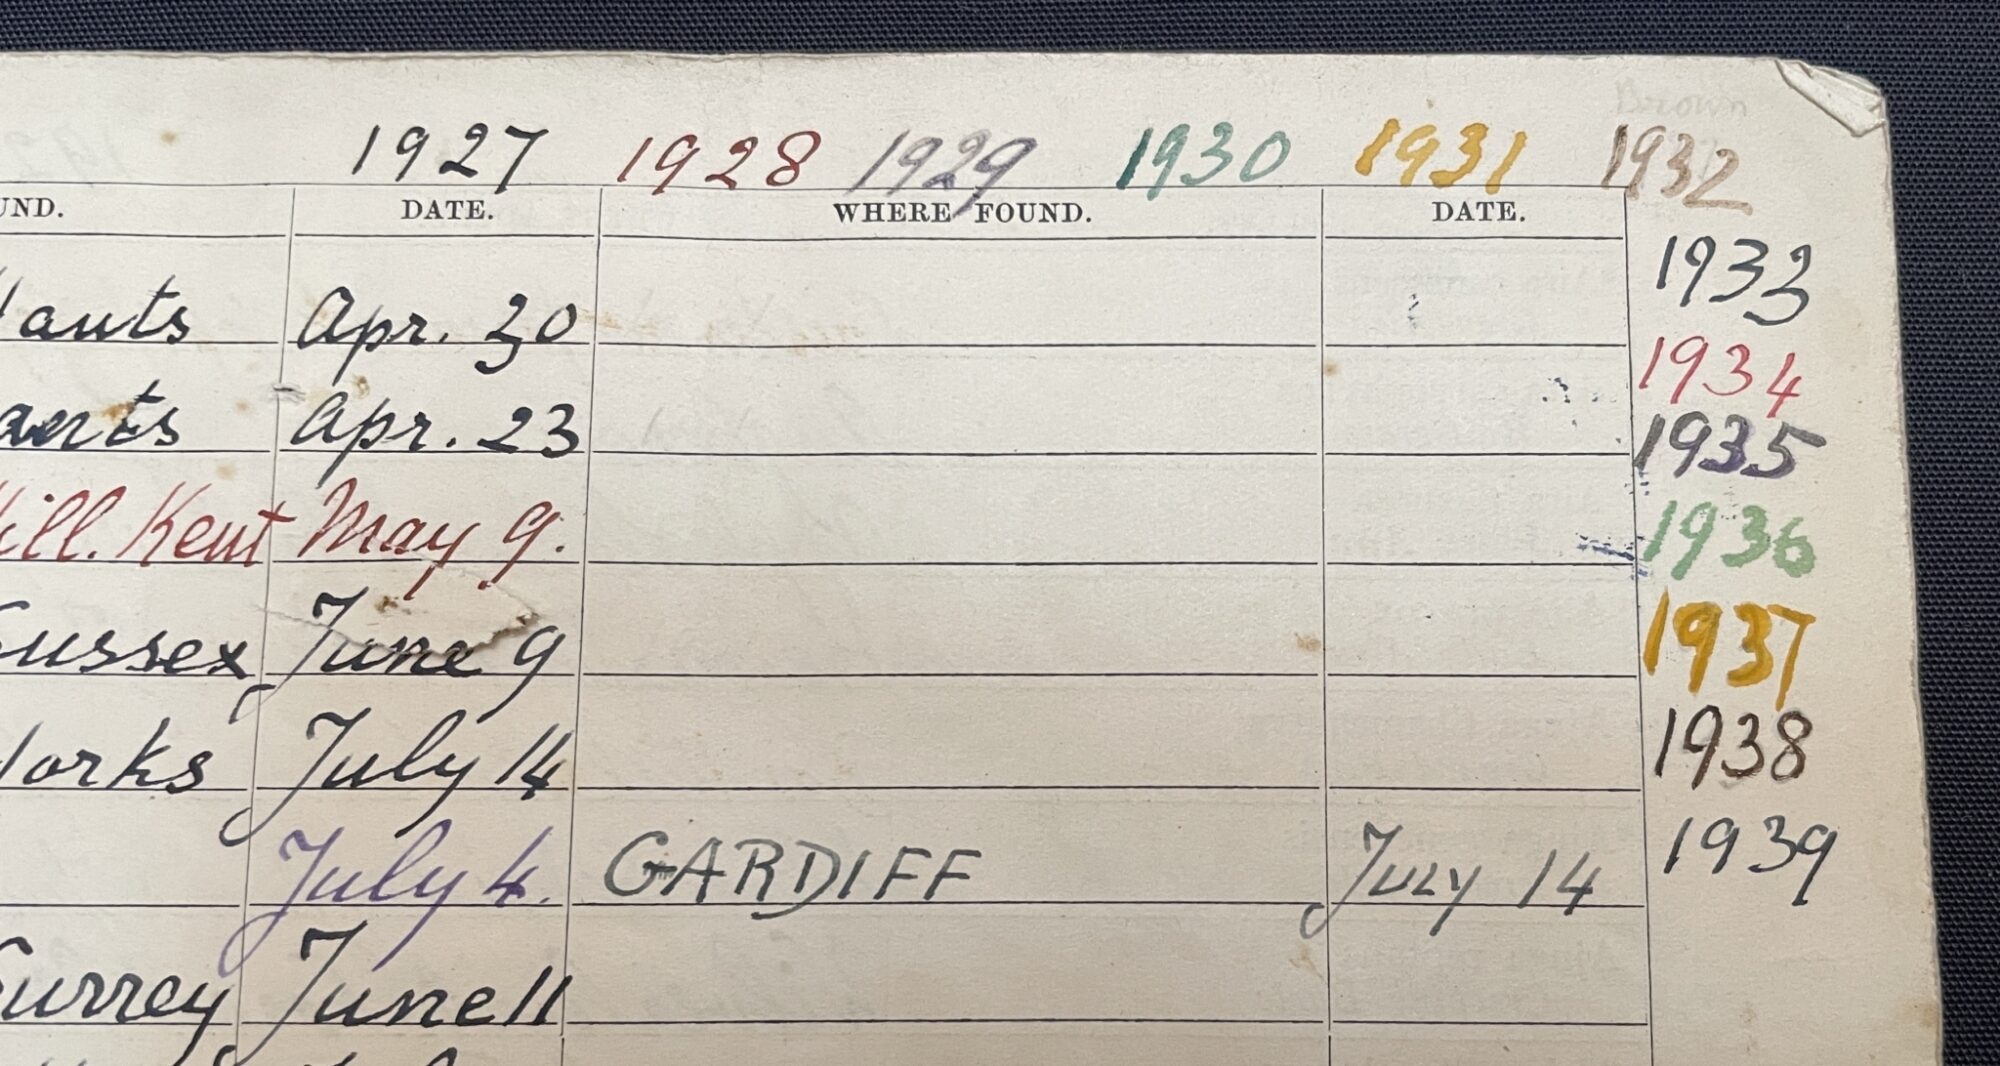 Brown
1927 1928 1929 1930 1931 1932
DATE. WHERE FOUND. DATE.
1933
Apr. 30
1934
Apr. 23
1935
Kent May 9.
1936
Sussex June 9
1937
July 14
1938
July 4. CARDIFF July 14
1939
Surrey June 11